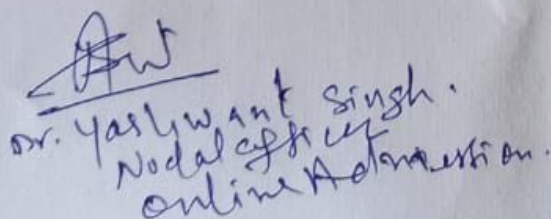 Dr. Yashwant Singh.
Nodal officer
Online Admission.